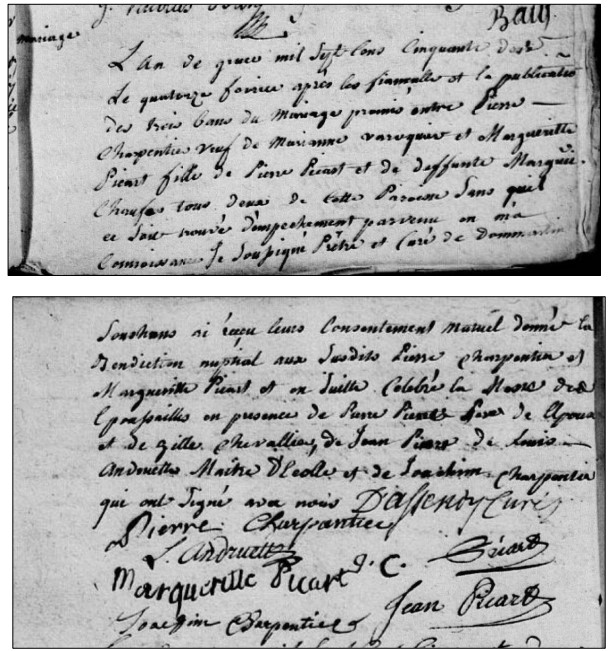 Mariage
L'An de grace mil Sept Cens Cinquante
Le quatorze fevrier après les fiancailles et la publication
des trois bans du Mariage promis entre Pierre
Charpentier veuf de Marianne varoquier et Margueritte
Picart fille de Pierre Picart et de deffunte
tous deux de cette Paroisse Sans qu'il
ce soit trouvé d'empechement parvenu en ma
Connoissance Je Soussigné Prêtre et Curé de Dommartin
Soushans ai reçu leurs Consentement mutuel donné la
Benediction nuptial aux Susdits Pierre Charpentier et
Margueritte Picart et en Suitte Celebré la Messe des
Epousailles en presence de Pierre Pere de
et de Gille Chevallier, de Jean Picart de Louis
Andruette Maitre D'Ecolle et de Joachim Charpentier
qui ont Signé avec nous D'assenoy Curé
Pierre Charpantier
L. Andruette
Marguerille Picart J. C. Picart
Joachim Charpentier Jean Picart